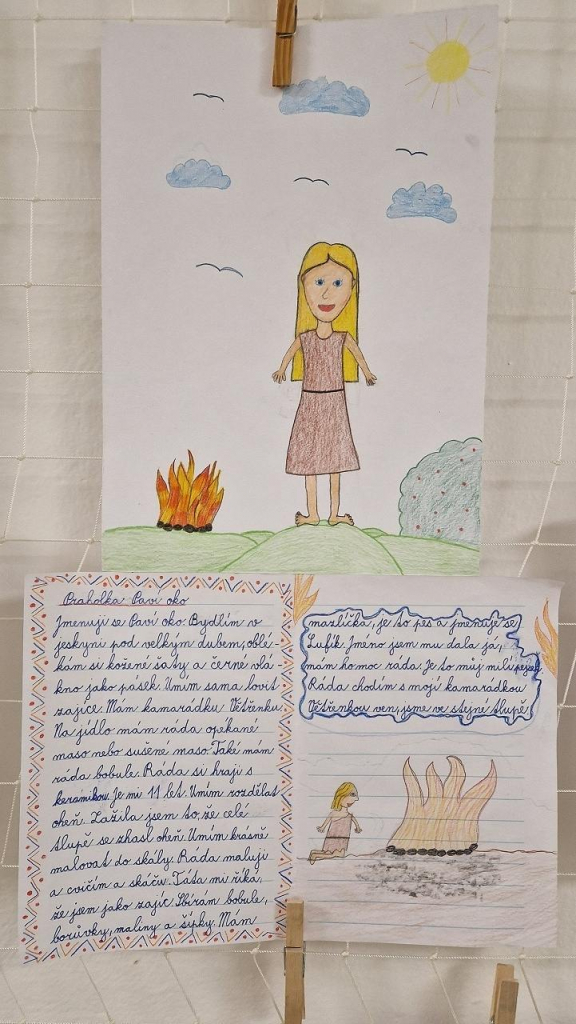 Praholka Paví oko
Jmenuji se Paví oko. Bydlím v
jeskyni pod velkým dubem, oblé-
kám si kožené šaty a černé vlá-
kno jako pásek. Umím sama lovit
zajíce. Mám kamarádku Větřenku.
Na jídlo mám ráda opékané
maso nebo sušené maso. Také mám
ráda bobule. Ráda si hraji s
keramikou. Je mi 11 let. Umím rozdělat
oheň. Zažila jsem to, že celé
tlupě se zhasl oheň. Umím krásně
malovat do skály. Ráda maluji
a cvičím a skáču. Táta mi říká,
že jsem jako zajíc. Sbírám bobule,
borůvky, maliny a šípky. Mám
mazlíčka, je to pes a jmenuje se
Lufík. Jméno jsem mu dala já,
mám ho moc ráda. Je to můj milý pejsek.
Ráda chodím s mojí kamarádkou
Větřenkou ven, jsme ve stejné tlupě.